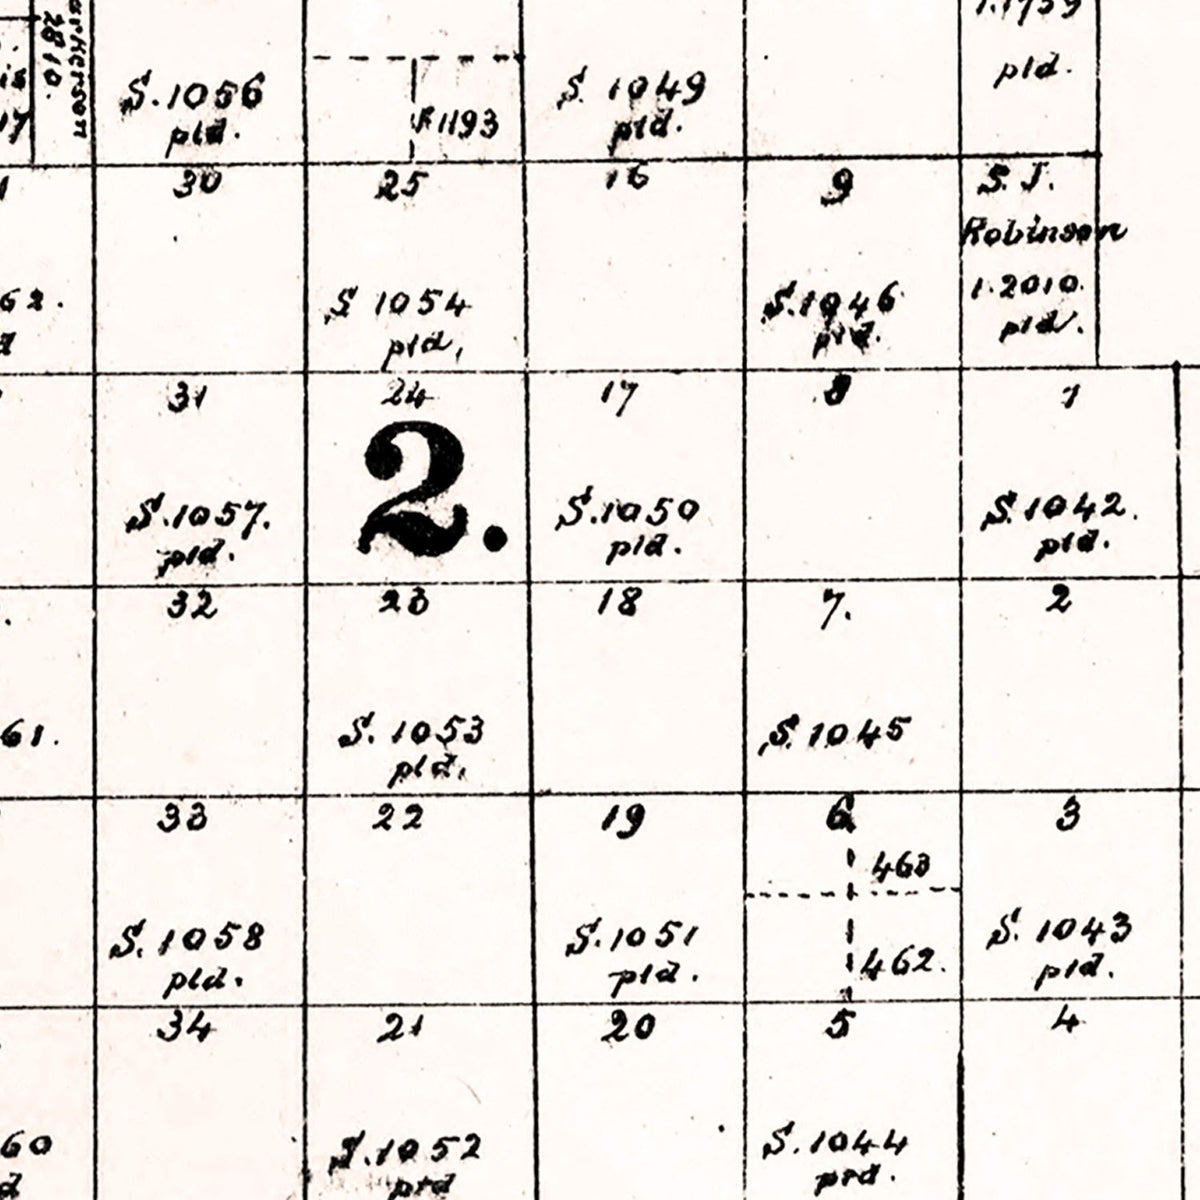 S. 1056
pld.
F1193
S 1049
pld.
pld.
2810.
30
25
16
9
S. J.
Robinson
1.2010.
pld.
62.
S 1054
pld,
S. 1046
pld.
31
24
17
8
1
2.
S. 1057.
pld.
S. 1050
pld.
S. 1042.
pld.
32
23
18
7.
2
61.
S. 1053
pld,
S. 1045
33
22
19
6
3
463
S. 1058
pld.
S. 1051
pld.
462.
S. 1043
pld.
34
21
20
5
4
60
S. 1052
pld
S. 1044
prd.